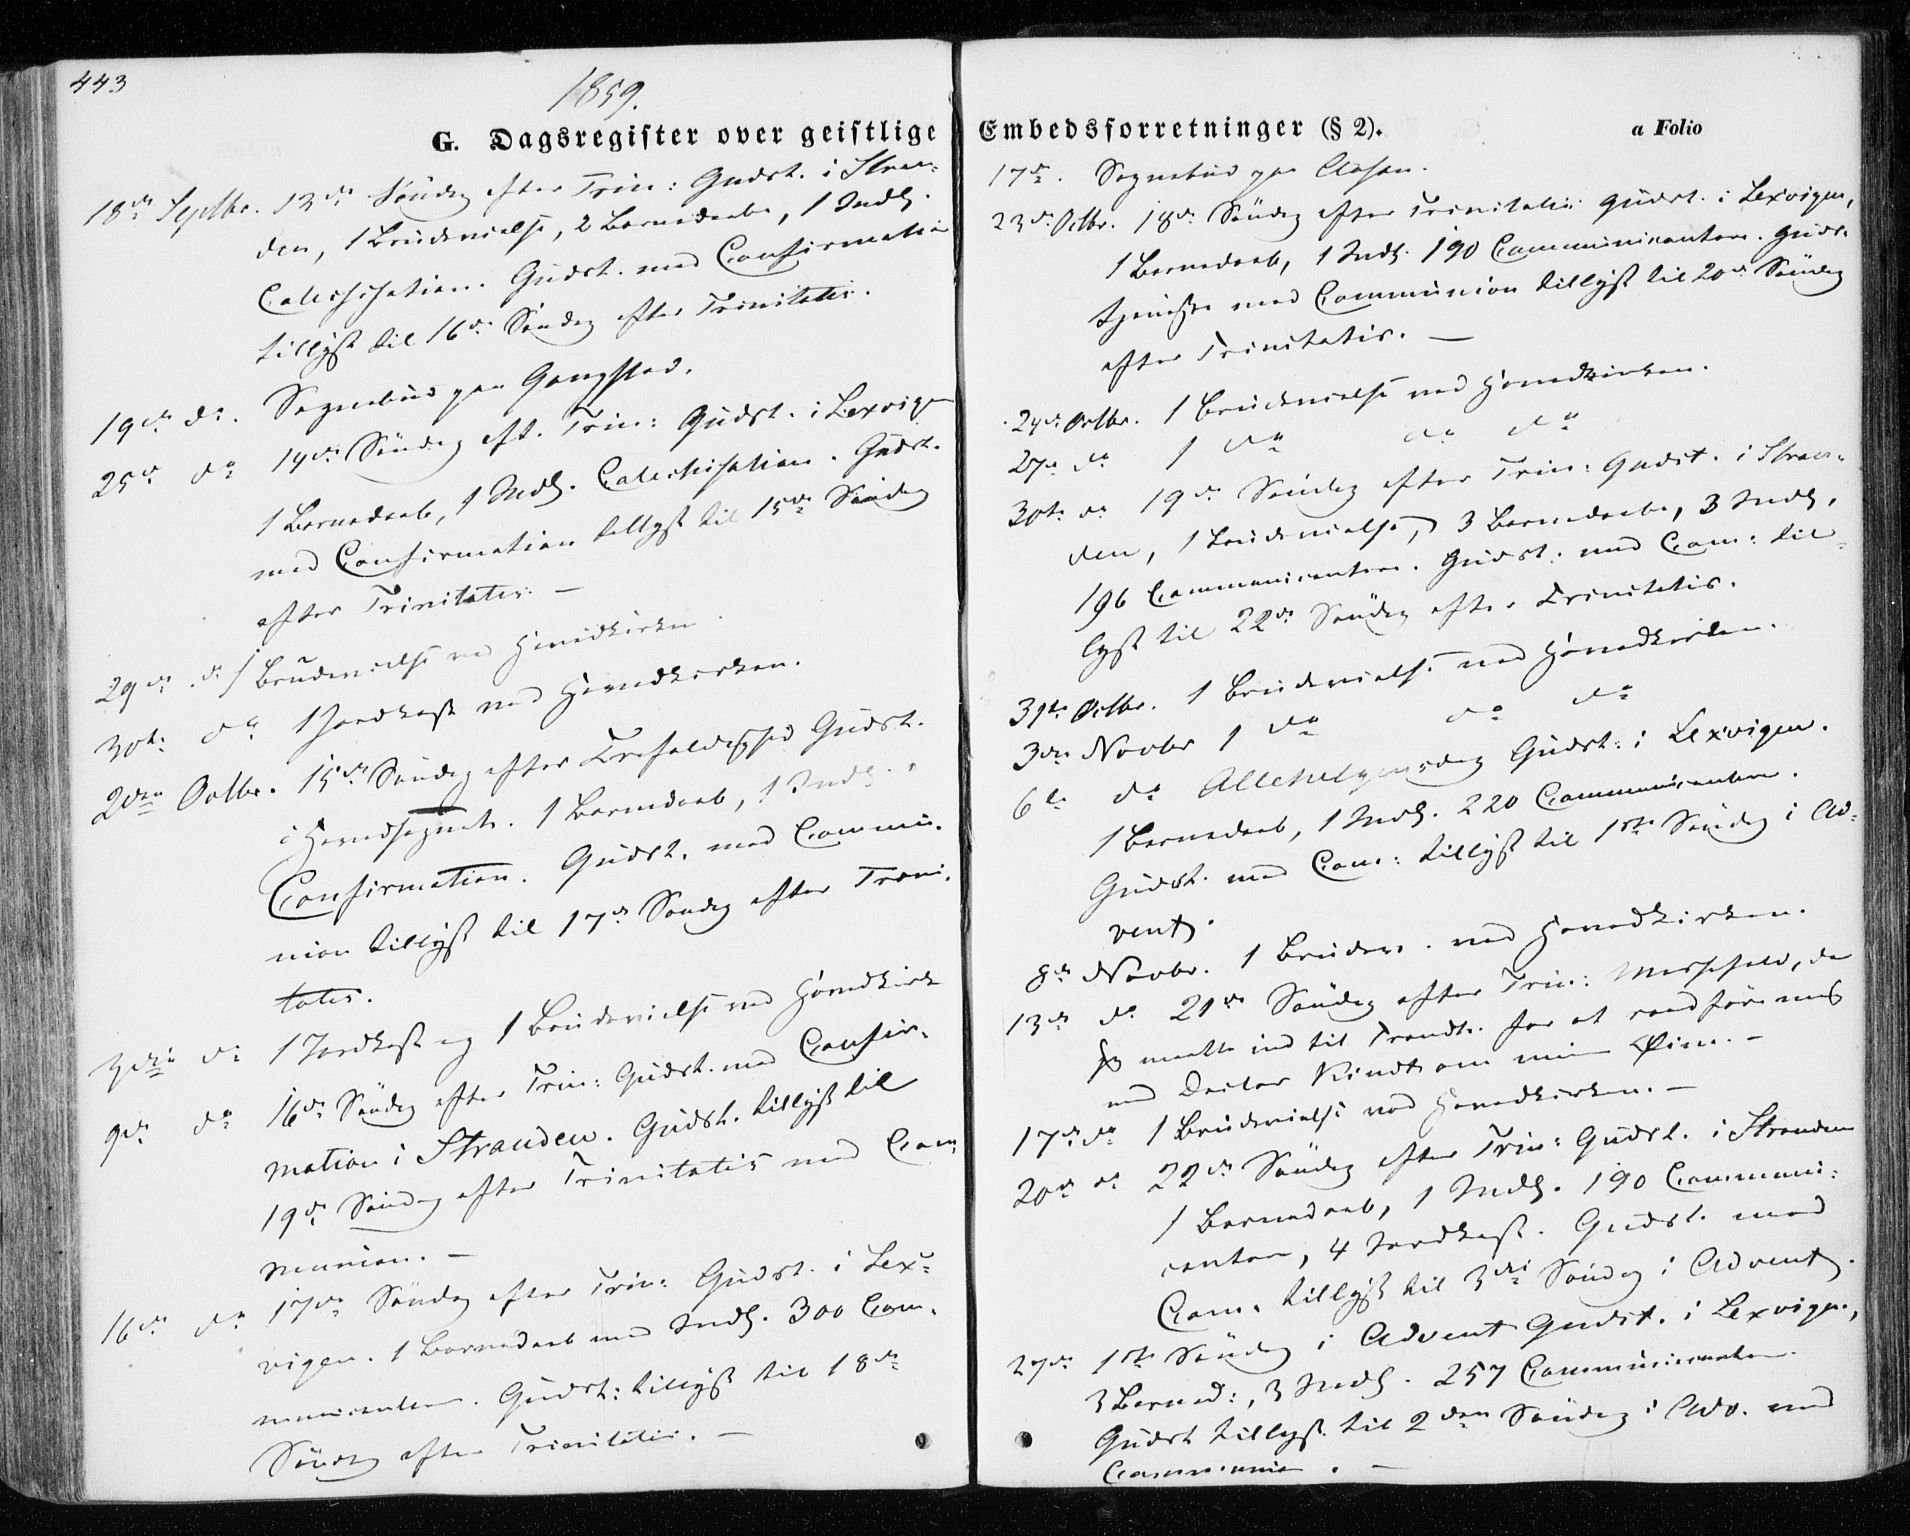 443
1859.
G. Dagsregister over geistlige
18de Septbr. 13de Søndag efter Trin: Gudst. i Stran-
den, 1 Brudevielse, 2 Barnedaab, 1 Indl.
Catechisation. Gudst. med Confirmation
tillyst til 16de Søndag efter Trinitatis.
19de do. Sognebud paa Gangstad.
25de do 14de Søndag eft. Trin: Gudst. i Lexvigen
1 Barnedaab, 1 Indl. Catechisation. Gudst.
med Confirmation tillyst til 15de Søndag
efter Trinitatis. –
29de do 1 Brudevielse ved Hovedkirken.
30te do 1 Jordkast ved Hovedkirken.
2den Octbr. 15de Søndag efter Trefoldighed Gudst.
i Hovedsognet. 1 Barnedaab, 1 Indl.,
Confirmation. Gudst. med Commu-
nion tillyst til 17de Søndag efter Trini-
tatis.
3die do 1 Jordkast og 1 Brudevielse ved Hovedkirk
9de do 16de Søndag efter Trin: Gudst. med Confir-
mation i Stranden. Gudst. tillyst til
19de Søndag efter Trinitatis med Com-
munion. –
16de do 17de Søndag efter Trin: Gudst. i Lex-
vigen. 1 Barnedaab med Indl. 300 Com-
municanter. Gudst: tillyst til 18de
Søndag efter Trinitatis. –
Embedsforretninger (§ 2).
a Folio
17de. Sognebud paa
23de Octbr. 18de Søndag efter Trinitatis Gudst. i Lexvigen,
1 Barnedaab, 1 Indl. 190 Communicantere. Guds-
tjeneste med Communion tillyst til 20de Søndag
efter Trinitatis. –
24de Octbr. 1 Brudevielse ved Hovedkirken.
27de do 1 do do do
30te do 19de Søndag efter Trin: Gudst. i Stran-
den, 1 Brudevielse, 3 Barnedaab, 3 Indl,
196 Communicantere. Gudst. med Com: til-
lyst til 22de Søndag efter Trinitatis.
31te Octbr. 1 Brudevielse ved Hovedkirken.
3die Novbr 1 do do do
6te do Allehelgensdag Gudst: i Lexvigen.
1 Barnedaab, 1 Indl. 220 Communicanter.
Gudst. med Com: tillyst til 1ste Søndag i Ad-
vent.
8de Novbr. 1 Brudev. ved Hovedkirken.
13de do 21de Søndag efter Trin: Messefald, da
jeg maatte ind til Trondh. for at raadföre mig
med Doctor Kindt om mine Øine. –
17de do 1 Brudevielse ved Hovedkirken. –
20de do 22de Søndag efter Trin: Gudst. i Stranden
1 Barnedaab, 1 Indl. 190 Communi-
canter, 4 Jordkast. Gudst. med
Com. tillyst til 3die Søndag i Advent.
27de 1ste Søndag i Advent Gudst. i Lexvigen,
3 Barned:, 3 Indl. 257 Communicanter.
Gudst tillyst til 2den Søndag i Adv. med
Communion. –